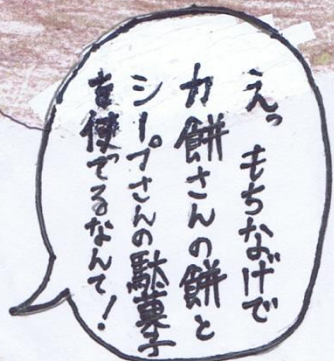 えっもちなげで
力餅さんの餅と
シープさんの駄菓子
を使てるなんて！